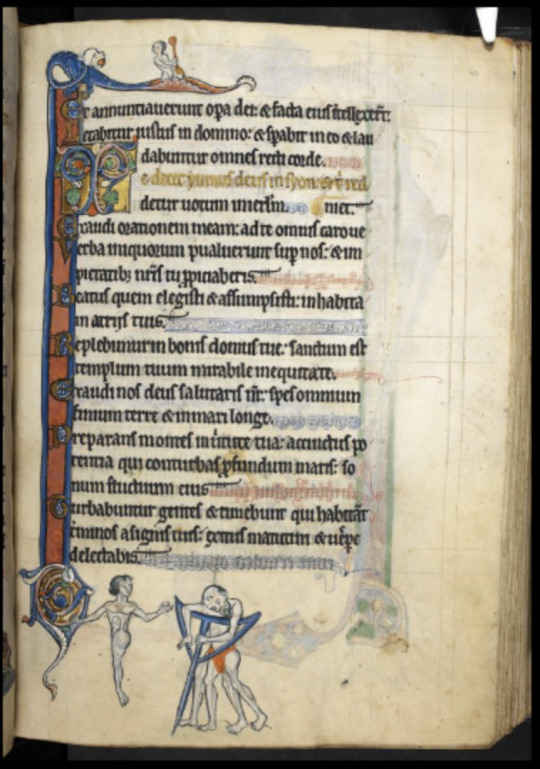 Et annuntiauerunt opa dei: & facta eius itellexerūt:
Letabitur iustus in domino: & spabit in eo & lau
dabuntur omnes recti corde.
Te decet ymnus deus in syon: & t̄ red
detur uotum in ierl̄m. niet.
Exaudi orationem meam: ad te omnis caro ue
Verba iniquorum p̄ualuerunt sup nos: & im
pietatib; nr̄is tu ppiciaberis.
Beatus quem elegisti & assumpsisti: inhabita
in atrijs tuis.
Replebimur in bonis domus tue: sanctum est
templum tuum mirabile in equitate.
Exaudi nos deus salutaris nr̄: spes omnium
finium terre & in mari longe.
Preparans montes in uirtute tua: accinctus po
tentia qui conturbas pfundum maris: so
num fluctuum eius
Turbabuntur gentes & timebunt qui habitāt
t̄minos a signis tuis: exitus matutini & uespe
delectabis.